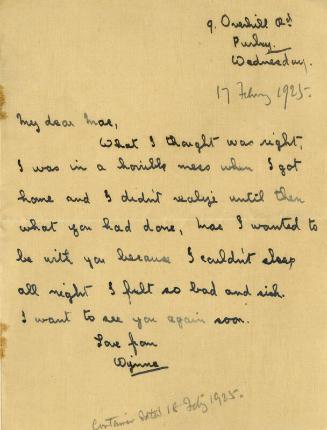 9. Overhill Rd
Purley.
Wednesday.
17 Febry 1925.
My dear Mac,
What I thought was right,
I was in a horrible mess when I got
home and I didn't realize until then
what you had done, Mac I wanted to
be with you because I couldn't sleep
all night I felt so bad and sick.
I want to see you again soon.
Love from
Wynne
dated 18 Febry 1925.